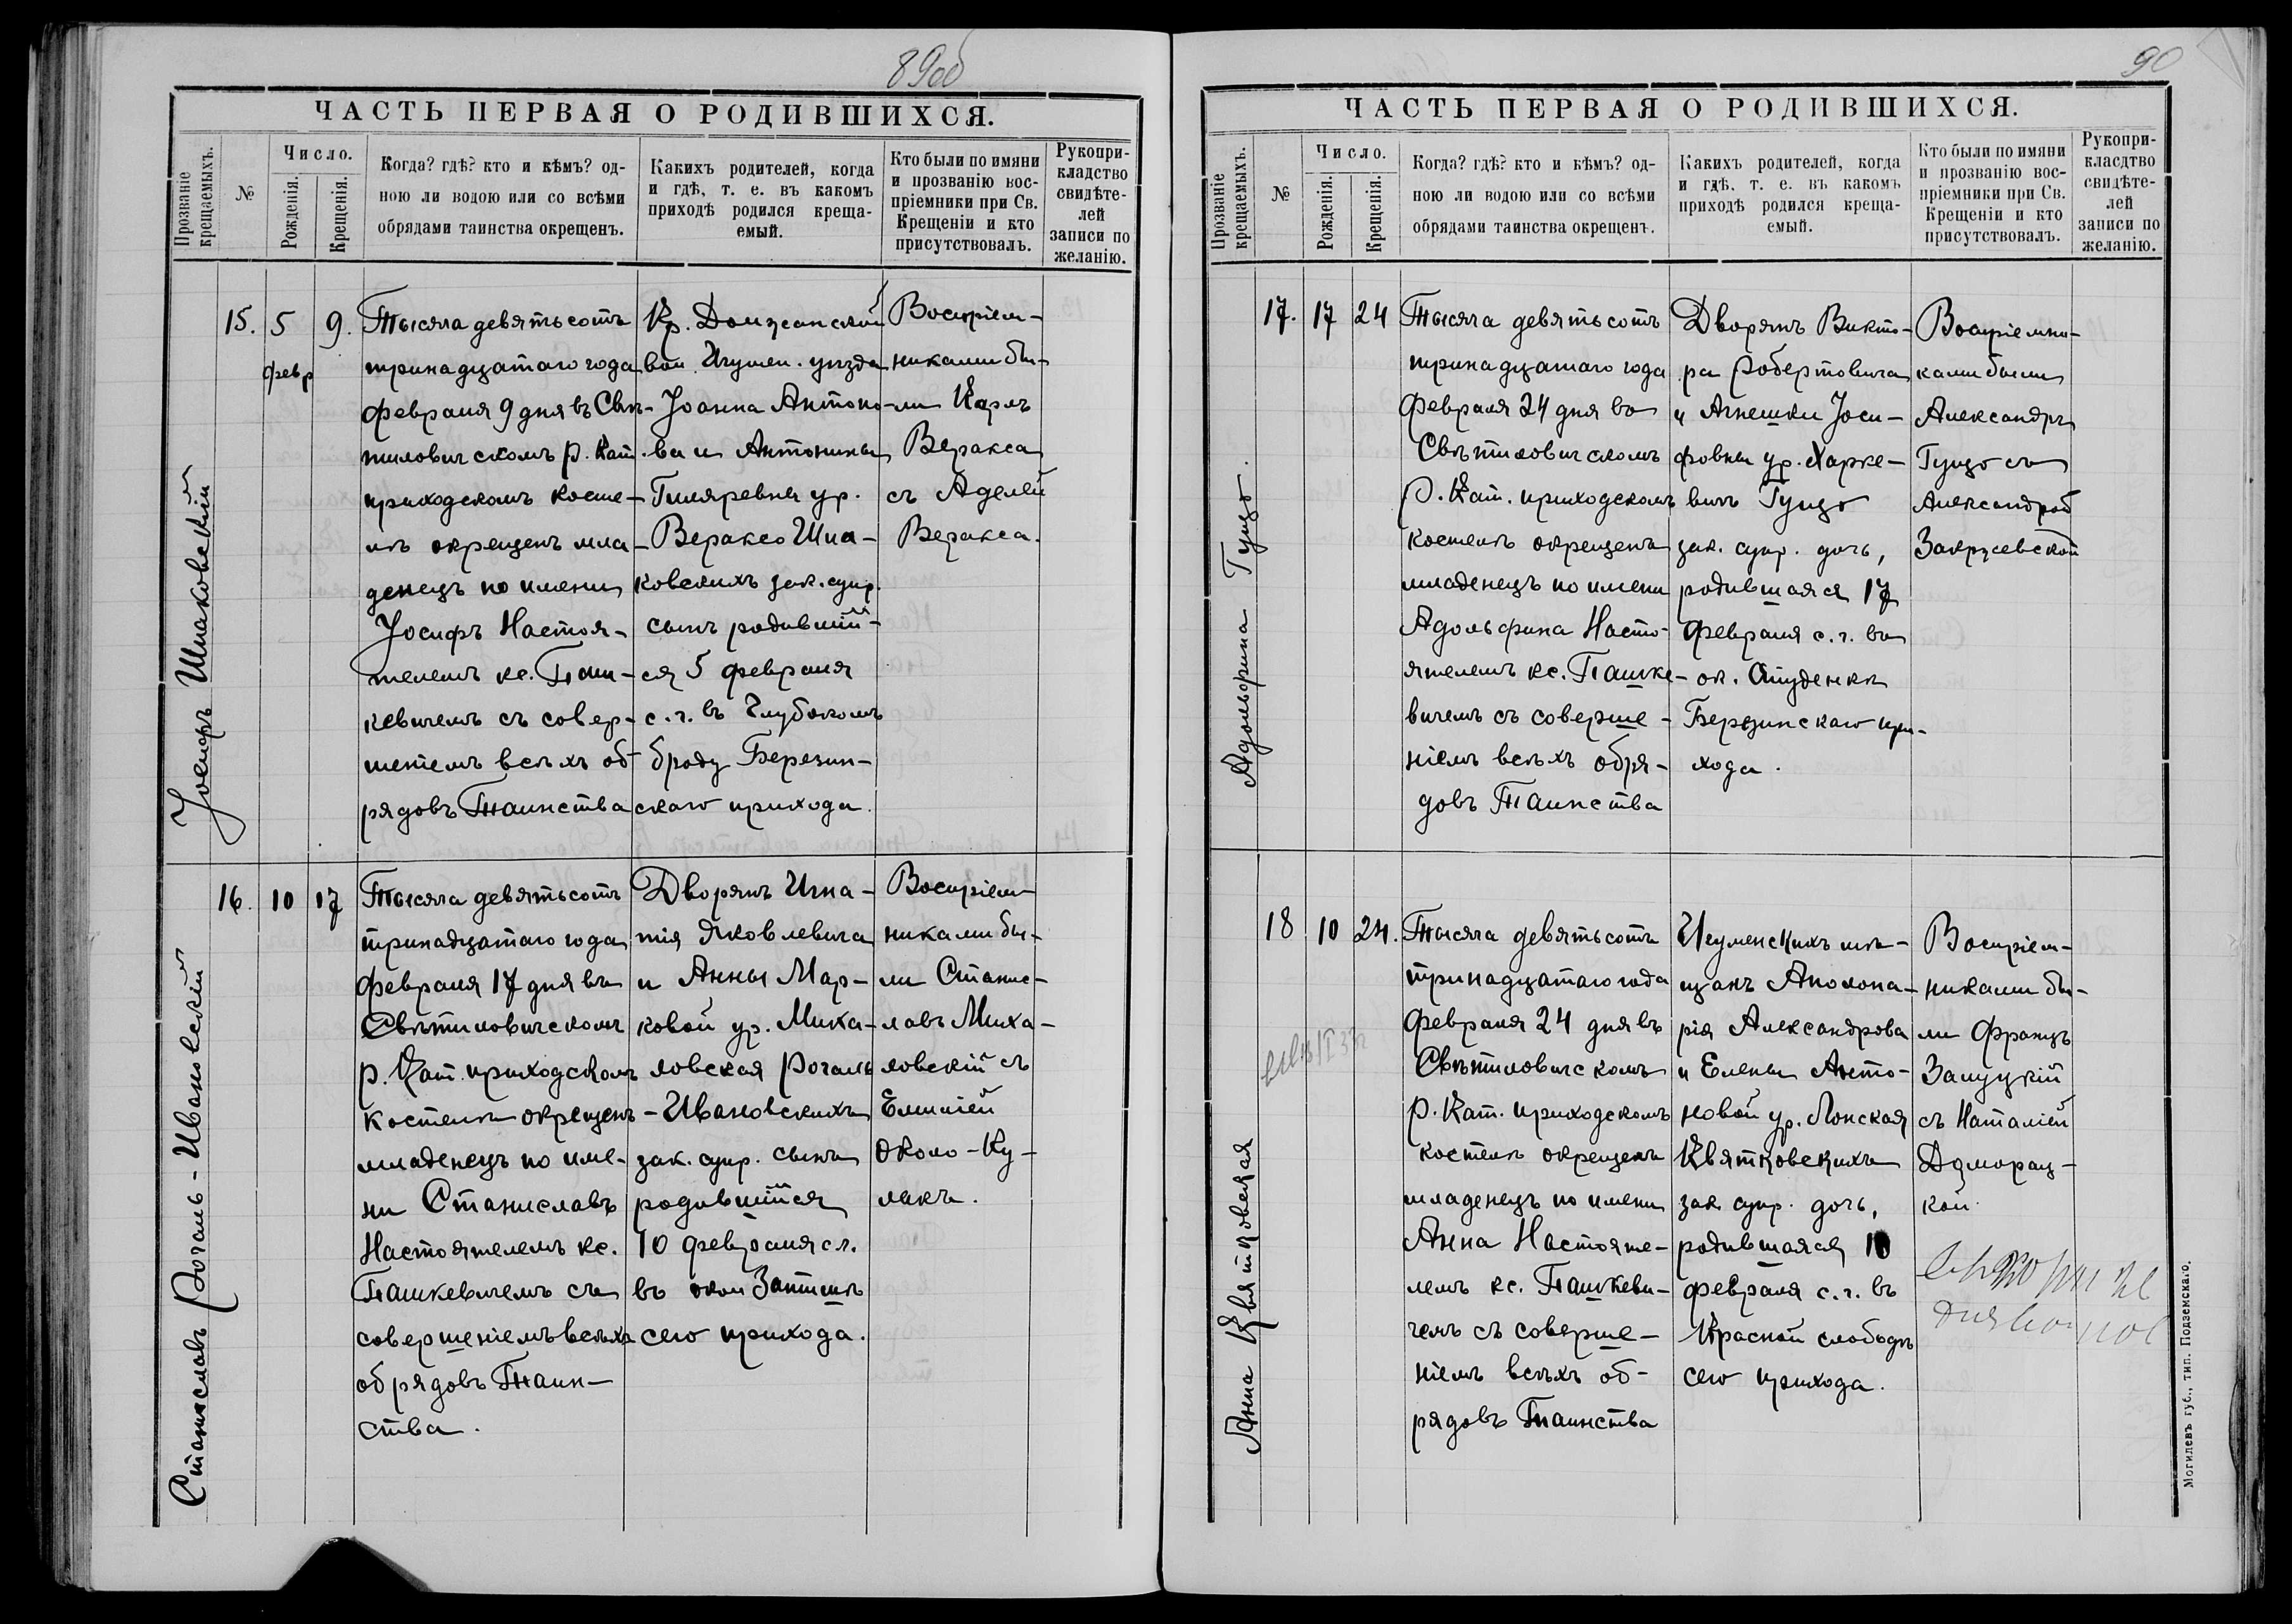 89об
ЧАСТЬ ПЕРВАЯ О РОДИВШИХСЯ.
Прозваніе крещаемыхъ.
№
Число.
Рожденія.
Крещенія.
Когда? гдѣ? кто и кѣмъ? од-
ною ли водою или со всѣми
обрядами таинства окрещенъ.
Какихъ родителей, когда
и гдѣ, т. е. въ какомъ
приходѣ родился креща-
емый.
Кто были по имяни
и прозванію вос-
пріемники при Св.
Крещеніи и кто
присутствовалъ.
Рукопри-
кладство
свидѣте-
лей
записи по
желанію.
Іосифъ Шпаковскій
15.
5
февр
9.
Тысяча девятьсотъ
тринадцатаго года
февраля 9 дня въ Свѣ-
тиловичскомъ р. Кат.
приходскомъ косте-
лѣ окрещенъ мла-
денецъ по имени
Іосифъ Настоя-
телемъ кс. Паш-
кевичемъ съ совер-
шеніемъ всѣхъ об-
рядовъ Таинства
Кр. Должанской
вол. Игумен. уѣзда
Іоанна Антоно-
ва и Антонины
Гиляревны ур.
Веракса Шпа-
ковскихъ зак. супр.
сынъ родившій-
ся 5 февраля
с. г. въ Глубокомъ
броду Березин-
скаго прихода.
Воспріем-
никами бы-
ли Карлъ
Веракса
съ Аделей
Веракса.
Станиславъ Рогаль-Ивановскій
16.
10
17
Тысяча девятьсотъ
тринадцатаго года
февраля 17 дня въ
Свѣтиловичскомъ
р. Кат. приходскомъ
костелѣ окрещенъ
младенецъ по име-
ни Станиславъ
Настоятелемъ кс.
Пашкевичемъ съ
совершеніемъ всѣхъ
обрядовъ Таин-
ства.
Дворянъ Игна-
тія Яковлевича
и Анны Мар-
ковой ур. Миха-
ловская Рогаль
-Ивановскихъ
зак. супр. сынъ
родившійся
10 февраля с. г.
въ окол. Затишѣ
сего прихода.
Воспріем-
никами бы-
ли Станис-
лавъ Миха-
ловскій съ
Емиліей
Около-Ку-
лакъ.
90
ЧАСТЬ ПЕРВАЯ О РОДИВШИХСЯ.
Прозваніе крещаемыхъ.
№
Число.
Рожденія.
Крещенія.
Когда? гдѣ? кто и кѣмъ? од-
ною ли водою или со всѣми
обрядами таинства окрещенъ.
Какихъ родителей, когда
и гдѣ, т. е. въ какомъ
приходѣ родился креща-
емый.
Кто были по имяни
и прозванію вос-
пріемники при Св.
Крещеніи и кто
присутствовалъ.
Рукопри-
класдтво
свидѣте-
лей
записи по
желанію.
Адольфина Гуцо.
17.
17
24
Тысяча девятьсотъ
тринадцатаго года
февраля 24 дня въ
Свѣтиловичскомъ
р. Кат. приходскомъ
костелѣ окрещенъ
младенецъ по имени
Адольфина Насто-
ятелемъ кс. Пашке-
вичемъ съ соверше-
ніемъ всѣхъ обря-
довъ Таинства
Дворянъ Викто-
ра Робертовича
и Агнешки Іоси-
фовны ур. Харке-
вичъ Гуцо
зак. супр. дочь,
родившаяся 17
февраля с. г. въ
ок. Студенкѣ
Березинскаго при-
хода.
Воспріемни-
ками были
Александръ
Гуцо съ
Александрой
Закржевской
Анна Квятковская
18
10
24.
Тысяча девятьсотъ
тринадцатаго года
февраля 24 дня въ
Свѣтиловичскомъ
р. Кат. приходскомъ
костелѣ окрещенъ
младенецъ по имени
Анна Настояте-
лемъ кс. Пашкеви-
чемъ съ соверше-
ніемъ всѣхъ об-
рядовъ Таинства
Игуменскихъ мѣ-
щанъ Аполона-
рія Александрова
и Елены Анто-
новой ур. Лонская
Квятковскихъ
зак. супр. дочь,
родившаяся 10
февраля с. г. въ
Красной слободѣ
сего прихода.
Воспріем-
никами бы-
ли Францъ
Залуцкій
съ Наталіей
Доморац-
кой.
Могилевъ губ., тип. Подземскаго.